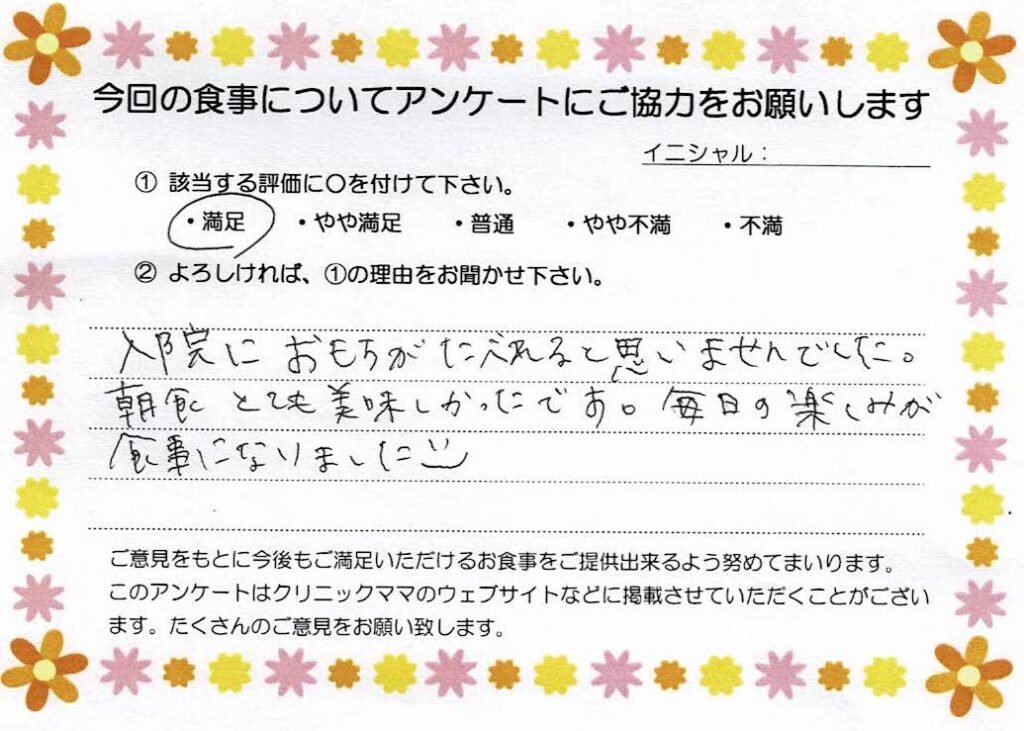 今回の食事についてアンケートにご協力をお願いします
イニシャル：
① 該当する評価に〇を付けて下さい。
・満足 ・やや満足 ・普通 ・やや不満 ・不満
② よろしければ、①の理由をお聞かせ下さい。
入院に おもちがたべれると思いませんでした。
朝食 とても美味しかったです。毎日の楽しみが
食事になりました
ご意見をもとに今後もご満足いただけるお食事をご提供出来るよう努めてまいります。
このアンケートはクリニックママのウェブサイトなどに掲載させていただくことがござい
ます。たくさんのご意見をお願い致します。